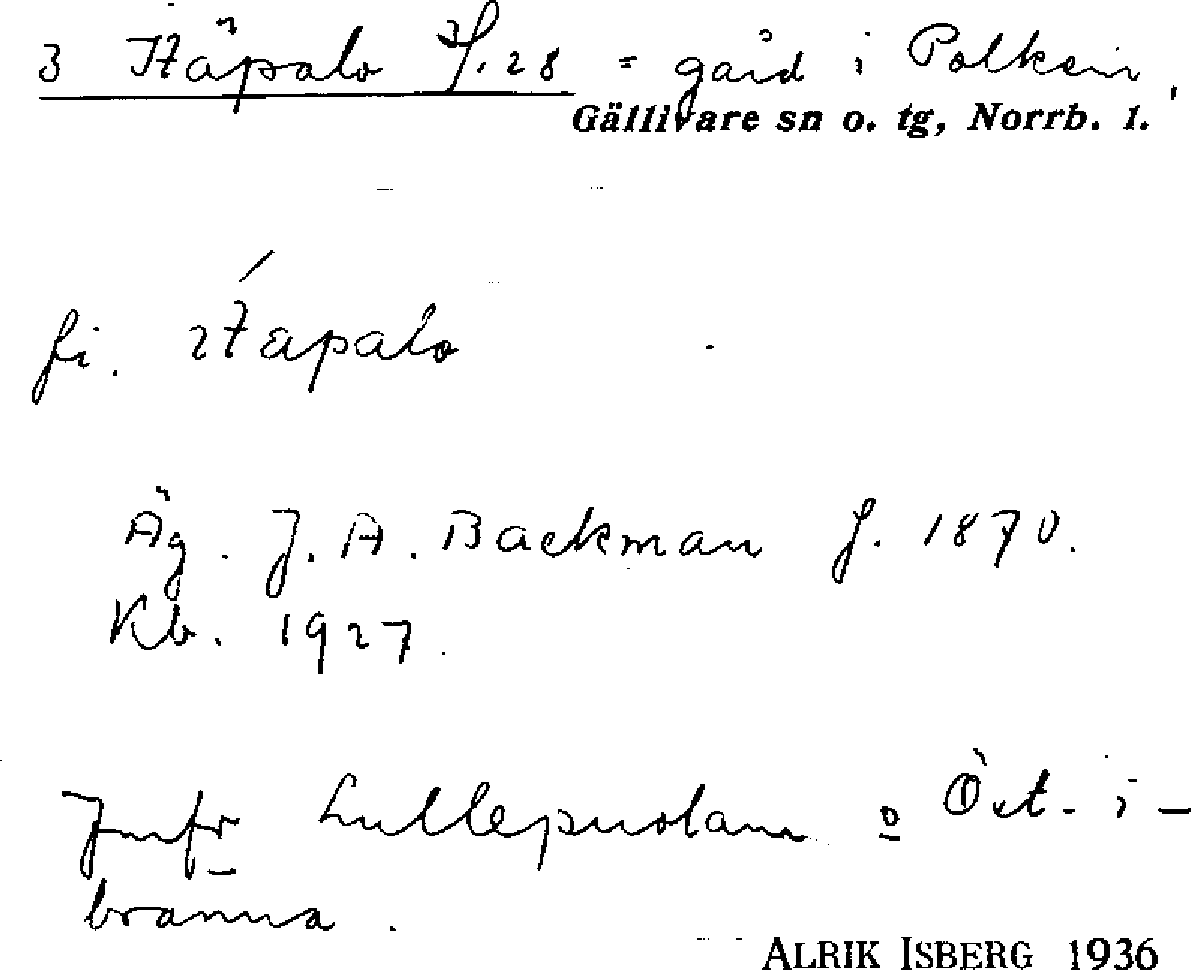 3 Häpalo 3/.28 = gård i Polkein,
Gällivare sn o. tg, Norrb. l.
fi. Häpalo
Äg. J. A. Backman f. 1870.
Kb. 1927.
Jmfr Lullepuolam o Öst- i-
bränna.
ALRIK ISBERG 1936